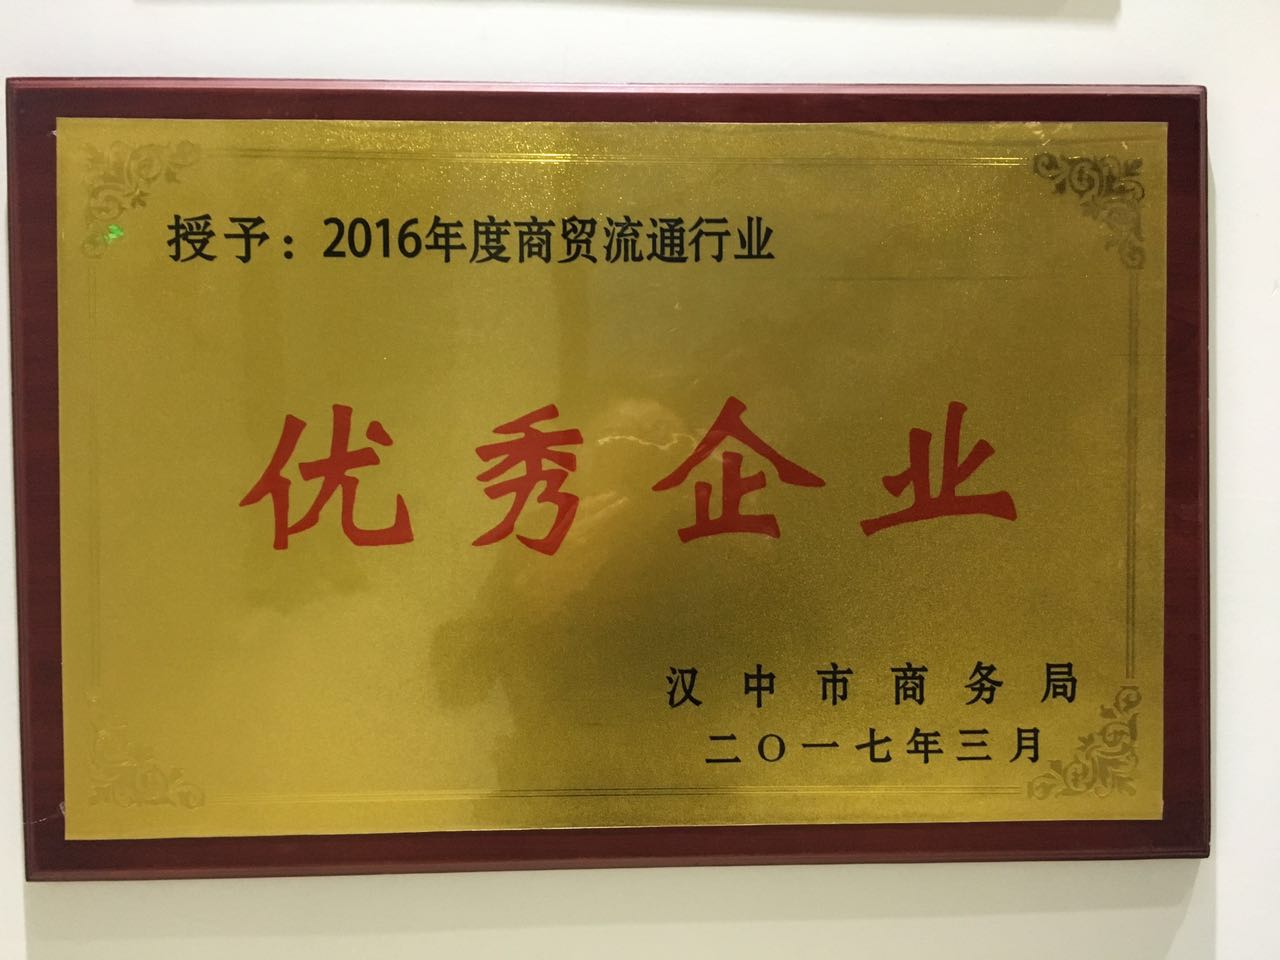 授予：2016年度商贸流通行业
优秀企业
汉中市商务局
二〇一七年三月